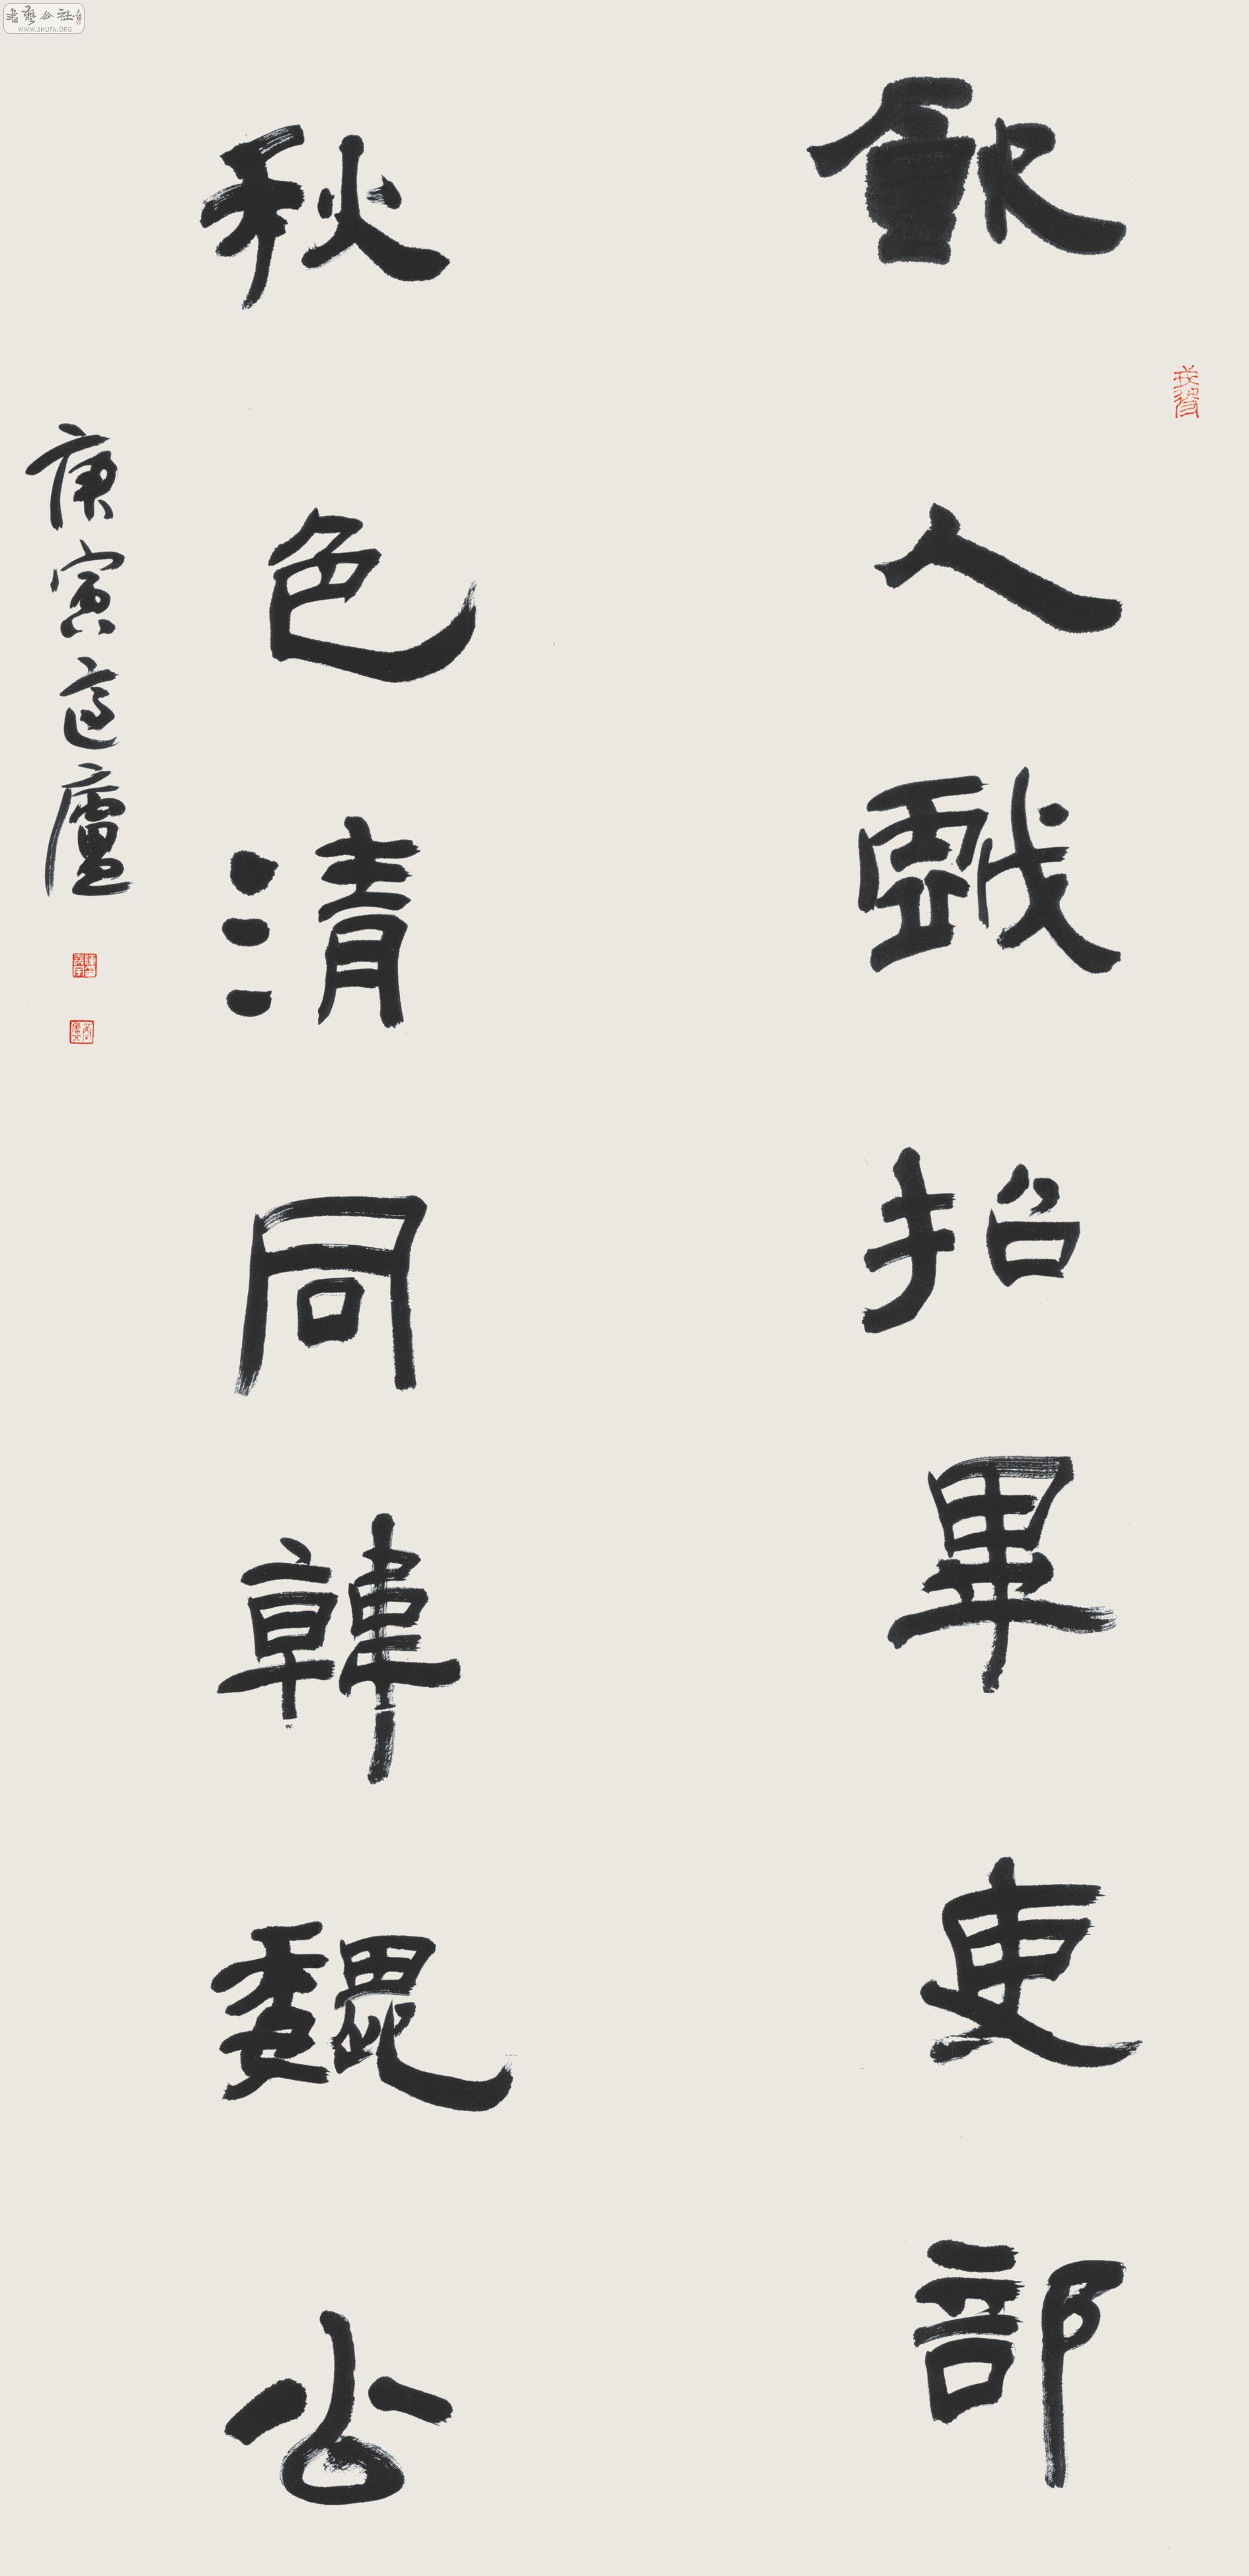 飲人戲招畢吏部
秋色清同韓魏公
庚寅適廬
書藝公社
WWW.SHUFA.ORG